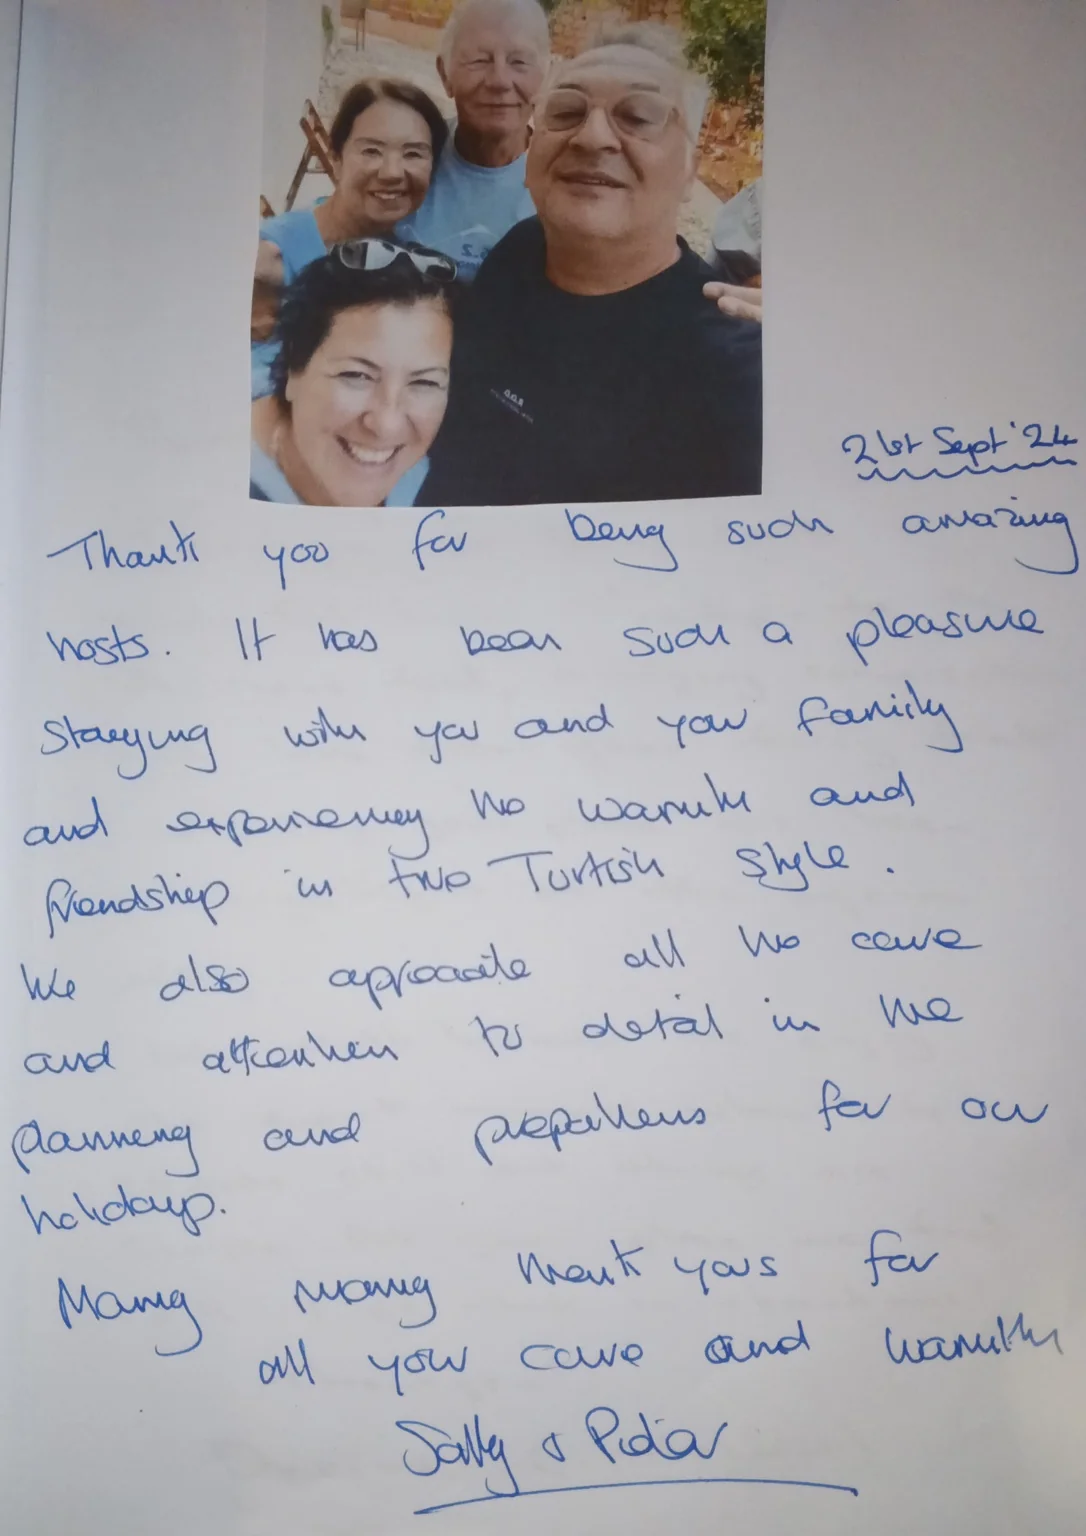 21st Sept '24
Thank you for being such amazing
hosts. It has been such a pleasure
staying with you and your family
and experiencing the warmth and
friendship in true Turkish style.
We also appreciate all the care
and attention to detail in the
planning and preparations for our
holidays.
Many many thank yous for
all your care and warmth
Sally &